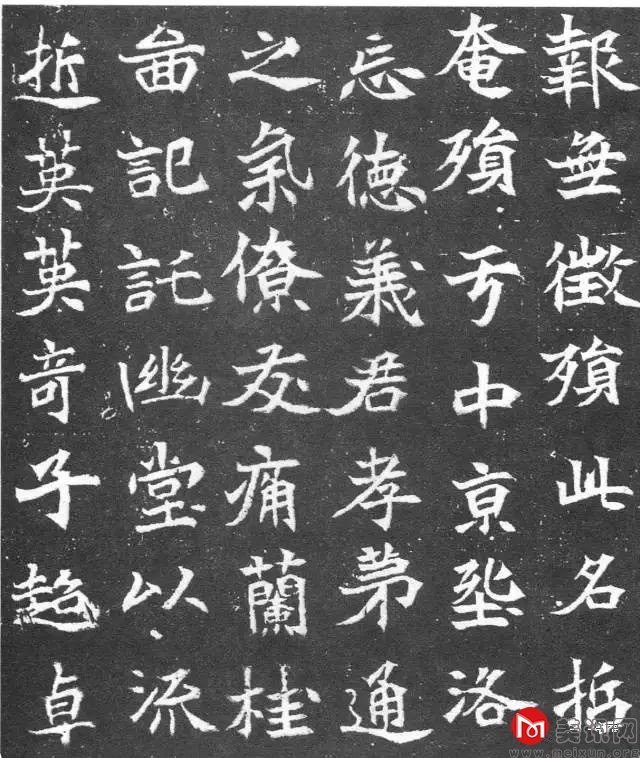 報無徵殞此名哲
奄殞亏中京坠洛
忘德義君孝弟通
之氣僚友痛蘭桂
啚記託幽堂以流
逝英英奇子超卓
美术网
www.meixun.com